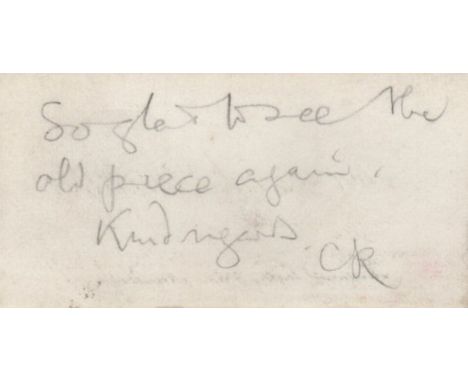 So glad to see the
old piece again.
Kind regards
CR